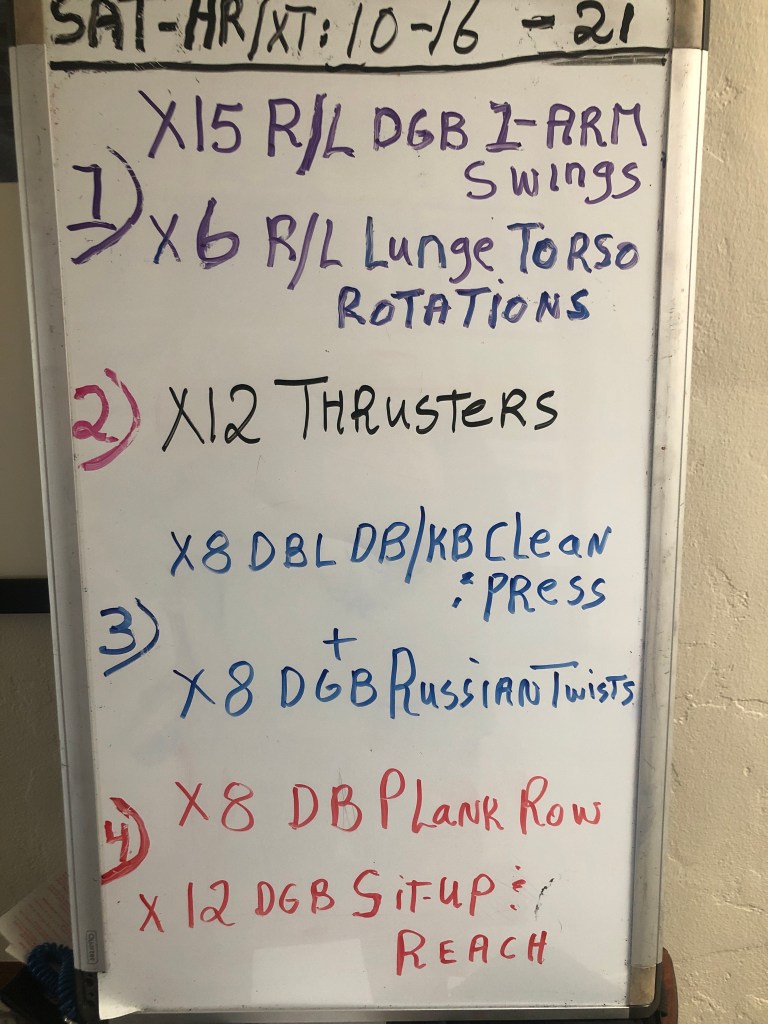 SAT-HR/XT: 10-16 -21
X15 R/L DGB 1-ARM
SWINGS
1)
X6 R/L Lunge TORSO
ROTATIONS
2) X12 THRUSTERS
X8 DBL DB/KB CLeAN
& PRESS
3)
+
X8 DGB RUSSIAN TWISTS
X8 DB PLANK ROW
4)
X12 DGB SIT-UP &
REACH